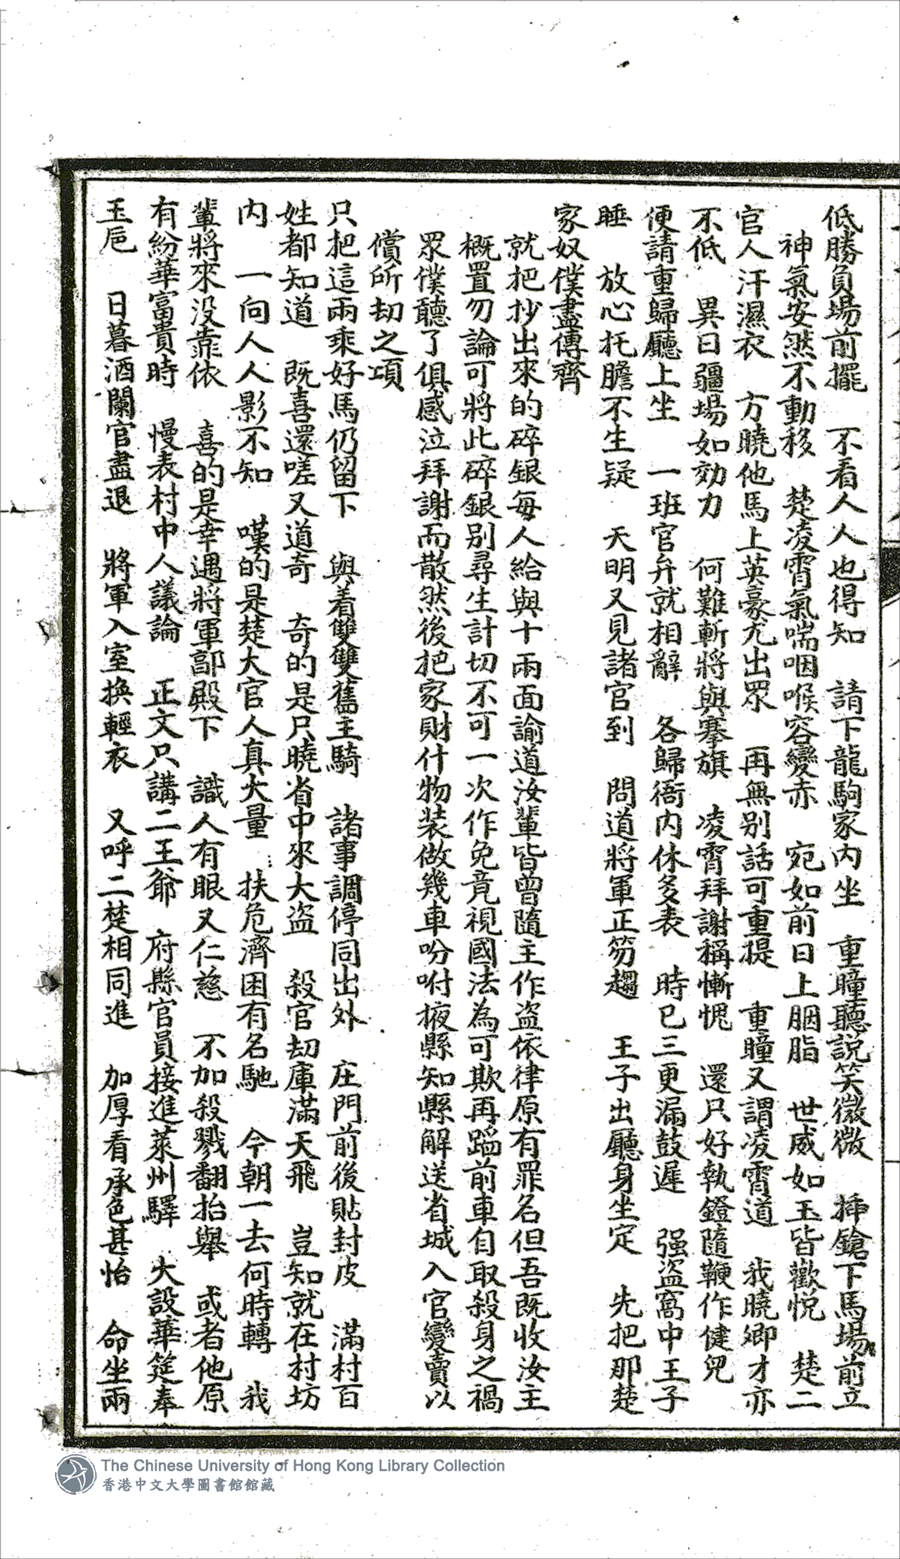 低勝負場前擺　不看人人也得知　請下龍駒家內坐　重瞳聽説笑微微　揷鎗下馬場前立
神氣安然不動移　楚凌霄氣喘咽喉容變赤　宛如前日上胭脂　世威如玉皆歡悦　楚二
官人汗濕衣　方曉他馬上英豪尤出眾　再無别話可重提　重瞳又謂凌霄道　我曉卿才亦
不低　異日疆場如効力　何難斬將與搴旗　凌霄拜謝稱慚愧　還只好執鐙隨鞭作健兒
便請重歸廳上坐　一班官弁就相辭　各歸衙内休多表　時已三更漏鼓遲　强盗窩中王子
睡　放心托膽不生疑　天明又見諸官到　問道將軍正笏趨　王子出廳身坐定　先把那楚
家奴僕盡傳齊
就把抄出來的碎銀每人給與十兩面諭道汝輩皆曾隨主作盗依律原有罪名但吾既收汝主
概置勿論可將此碎銀别尋生計切不可一次作免竟視國法為可欺再蹈前車自取殺身之禍
眾僕聽了俱感泣拜謝而散然後把家財什物装做幾車吩咐掖縣知縣解送省城入官變賣以
償所刧之項
只把這兩乘好馬仍留下　與着雙雙舊主騎　諸事調停同出外　庄門前後貼封皮　滿村百
姓都知道　既喜還嗟又道奇　奇的是只曉省中來大盗　殺官刧庫滿天飛　豈知就在村坊
内　一向人人影不知　嘆的是楚大官人真大量　扶危濟困有名馳　今朝一去何時轉　我
輩將來没靠依　喜的是幸遇將軍鄗殿下　識人有眼又仁慈　不加殺戮翻抬舉　或者他原
有紛華富貴時　慢表村中人議論　正文只講二王爺　府縣官員接進萊州驛　大設華筵奉
玉卮　日暮酒闌官盡退　將軍入室换輕衣　又呼二楚相同進　加厚看承色甚怡　命坐兩
The Chinese University of Hong Kong Library Collection
香港中文大學圖書館館藏